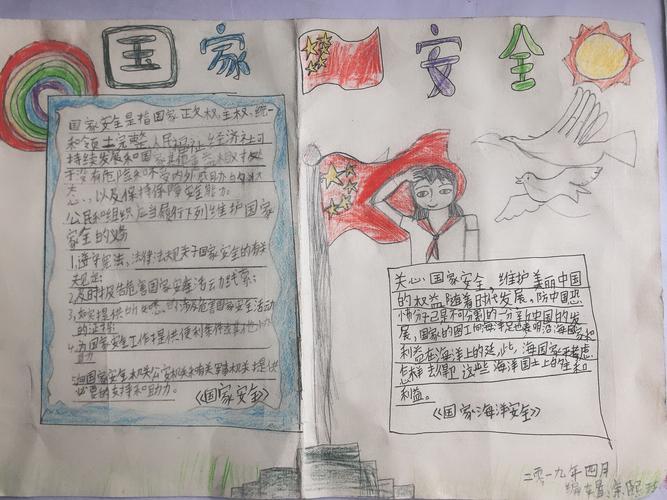 国家安全
国家安全是指国家政权、主权、统一
和领土完整、人民福祉、经济社会可
持续发展和国家其他重大利益相对
于没有危险和不受内外威胁的状
态,以及保持保障安全能力。
公民和组织应当履行下列维护国家
安全的义务
1.遵守宪法,法律法规关于国家安全的有关
规定;
2.及时报告危害国家安全活动线索;
3.如实提供所知悉的涉及危害国家安全活动
的证据;
4.为国家安全工作提供便利条件或其他
5.向国家安全机关公安机关和有关军事机关提供
必要的支持和助力。
《国家安全》
关心国家安全,维护美丽中国
的权益,随着时代发展,防中国恐
怖分子已是不可分割的一分
展,国家的
利益在海洋上的延
怎样去得取这些海洋国土上的
利益。
《国家海洋安全》
二零一九年四月